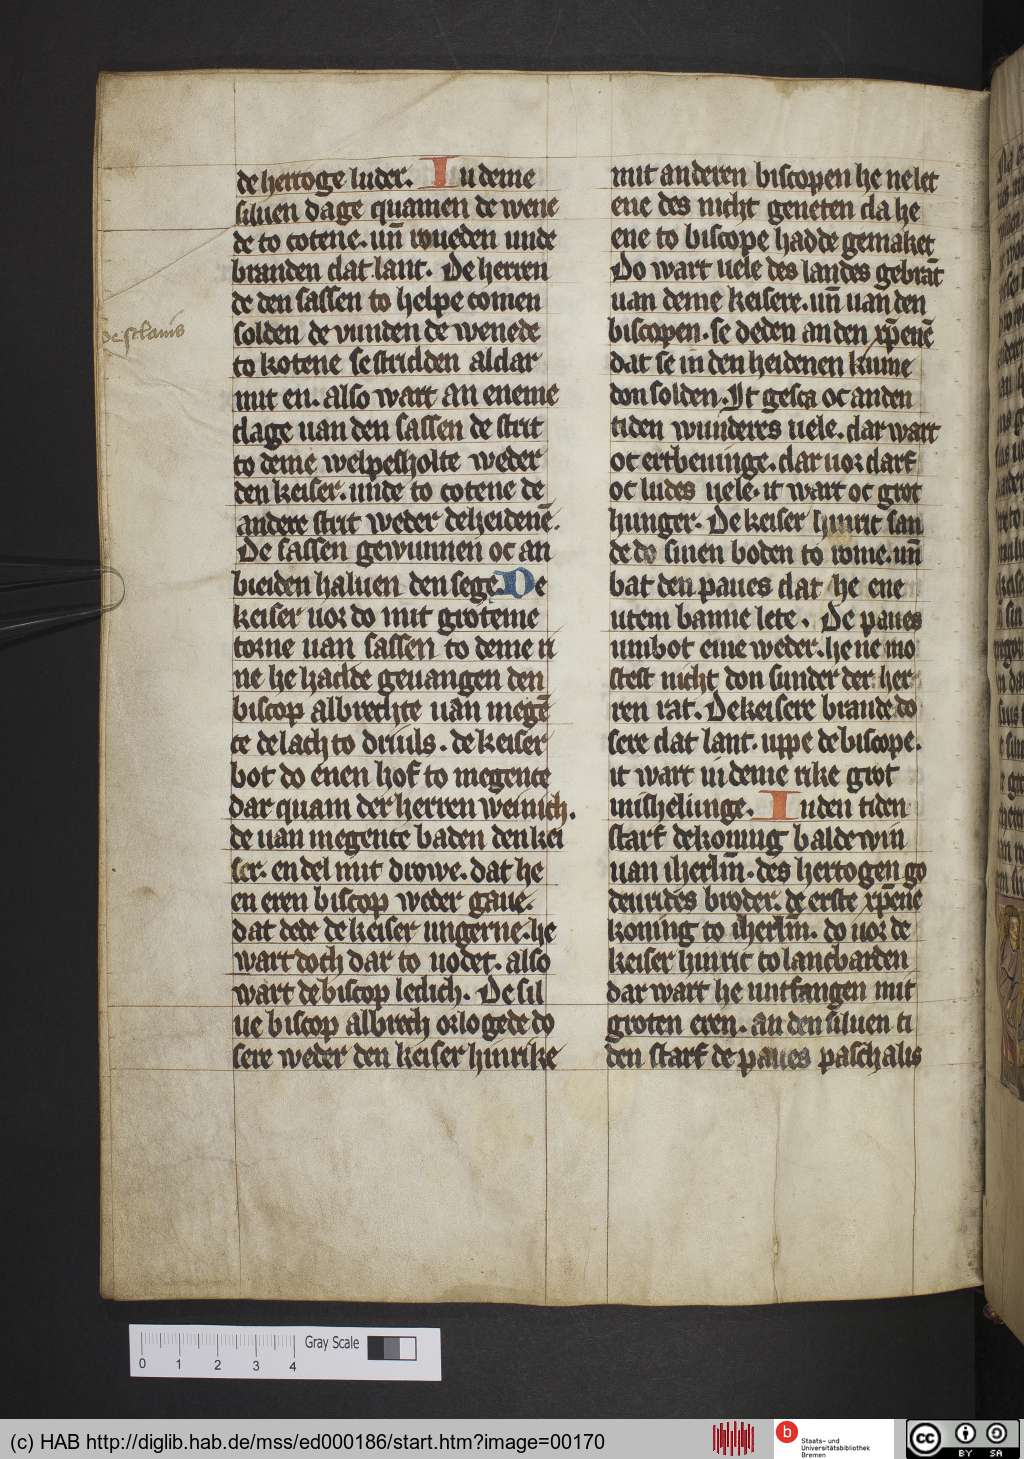 de hertoge luder. In deme
siluen dage quamen de wene
de to cotene. un̄ woueden unde
branden dat lant. De herren
de den sassen to helpe comen
solden de vunden de wenede
to kotene se stridden aldar
mit en. also wart an eneme
dage uan den sassen de strit
to deme welpesholte weder
den keiser. unde to cotene de
andere strit weder de heidenē.
De sassen gewunnen oc an
beiden haluen den sege. De
keiser uor do mit groteme
torne uan sassen to deme ri
ne he hadde geuangen den
biscop albrechte uan megē
ce de lach to driuls. de keiser
bot do enen hof to megence
dar quam der herren weinich.
de uan megente baden den kei
ser. en del mit drowe. dat he
en eren biscop weder gaue.
dat dede de keiser ungerne. he
wart doch dar to nodet. also
wart de biscop ledich. De sil
ue biscop albrech orlogede do
sere weder den keiser hinrike
mit anderen biscopen he ne let
ene des nicht geneten da he
ene to biscope hadde gemaket
Do wart uele des landes gebrāt
uan deme keisere. un̄ uan den
biscopen. se deden an den xp̄enē
dat se in den heidenen kume
don solden. It gesca oc an den
tiden wunderes uele. dar wart
oc ertbeuinge. dar uor darf
oc ludes uele. it wart oc grot
hunger. De keiser hinrit san
de do sinen boden to rome. un̄
bat den paues dat he ene
utem banne lete. De paues
umbot eme weder. he ne mo
stest nicht don sunder der her
ren rat. De keisere brande do
sere dat lant. uppe de biscope.
it wart in deme rike grot
mishelunge. In den tiden
starf de koning baldewin
uan iherlm̄. des hertogen go
deurides broder. de erste xp̄ene
koning to iherlm̄. do uor de
keiser hinric to lancbarden
dar wart he untfangen mit
groten eren. an den siluen ti
den starf de paues paschalis
de sclauis
0 1 2 3 4
Gray Scale
(c) HAB http://diglib.hab.de/mss/ed000186/start.htm?image=00170
b
Staats- und
Universitätsbibliothek
Bremen
cc
BY SA